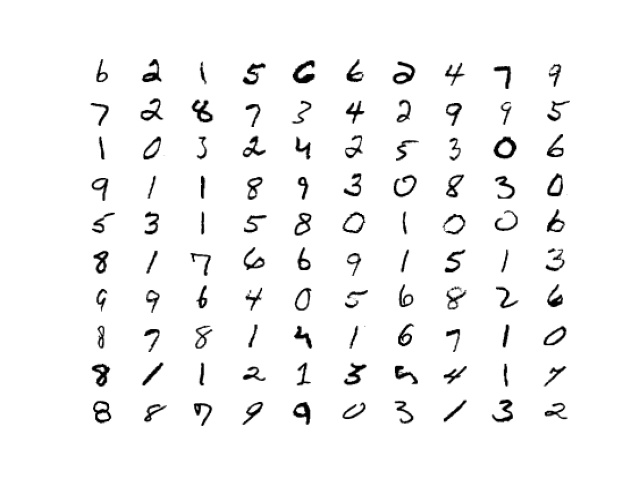 6 2 1 5 6 6 2 4 7 9
7 2 8 7 3 4 2 9 9 5
1 0 3 2 4 2 5 3 0 6
9 1 1 8 9 3 0 8 3 0
5 3 1 5 8 0 1 0 0 6
8 1 7 6 6 9 1 5 1 3
9 9 6 4 0 5 6 8 2 6
8 7 8 1 4 1 6 7 1 0
8 1 1 2 1 3 5 4 1 7
8 8 7 9 9 0 3 1 3 2